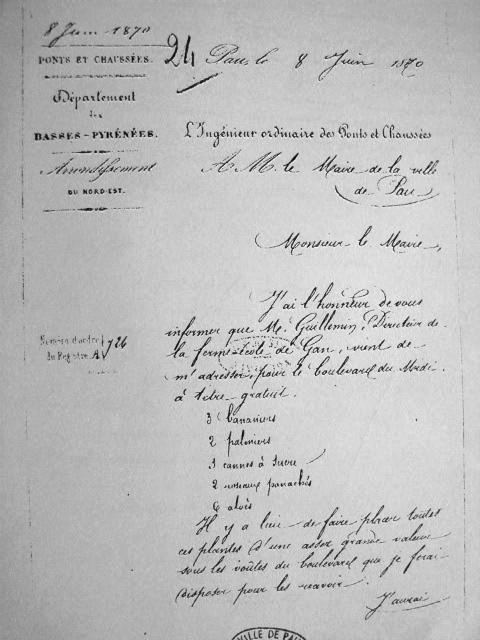 8 Juin 1870
24
PONTS ET CHAUSSÉES.
Pau, le 8 Juin 1870
Département
des
BASSES-PYRÉNÉES.
L'Ingénieur ordinaire des Ponts et Chaussées
Arrondissement
DU NORD-EST.
A M. le Maire de la ville
de Pau
Monsieur le Maire,
J'ai l'honneur de vous
informer que Mr. Guillemin, Directeur de
Numéro d'ordre
du Registre A
726
la ferme-école de Gan, vient de
m'adresser, pour le boulevard du Midi
à titre gratuit.
3 bananiers
2 palmiers
3 cannes à sucre
2 roseaux panachés
6 aloës
Il y a lieu de faire placer toutes
ces plantes d'une assez grande valeur
sous les voûtes du boulevard que je ferai
disposer pour les recevoir.
J'aurai
VILLE DE PAU